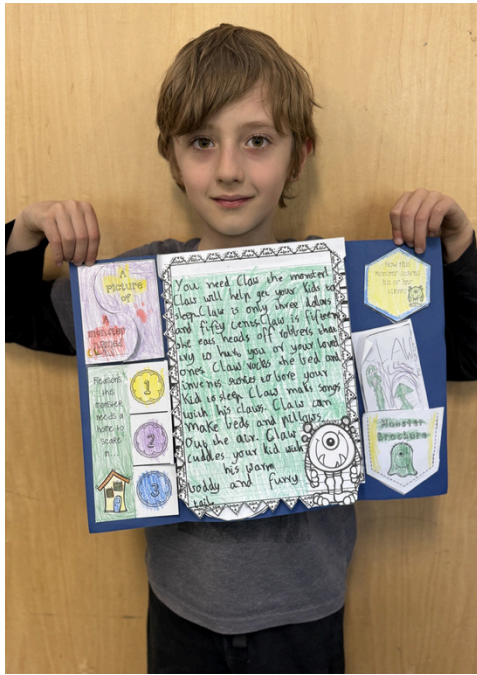 A
picture
of
A
monster
named
Claw
Reasons
this
monster
needs a
home to
scare
in...
1
2
3
You need Claw the monster!
Claw will help get your kids to
sleep. Claw is only three dollars
and fifty cents. Claw is fifteen
she eats heads off robbers that
try to hurt you or your loved
ones. Claw rocks the bed and
invents stories to bore your
kid to sleep. Claw make songs
with his claws. Claw can
make beds and pillows
out the air. Claw
cuddles your kid with
his warm
boddy and furry
tail.
How this
Monster
his or her
Monster
Brochure